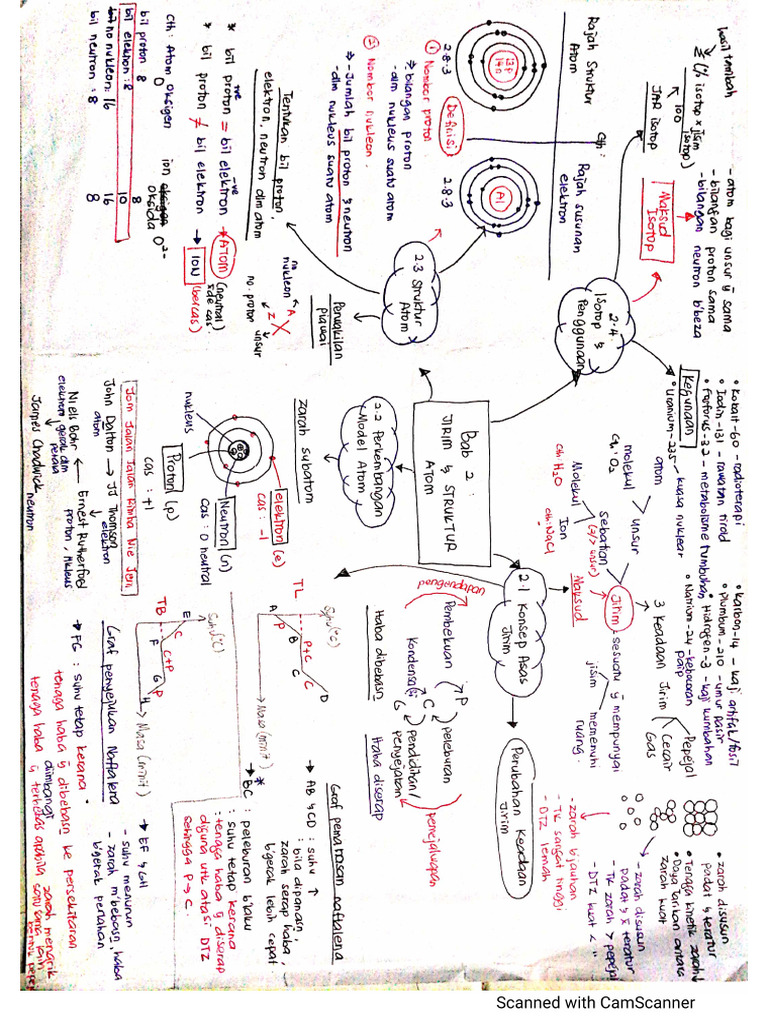 Bab 2 :
JIRIM & STRUKTUR
ATOM
2.1 Konsep Asas
Jirim
Maksud
Jirim
- sesuatu ȳ mempunyai
jisim
memenuhi
ruang.
3 Keadaan Jirim
Pepejal
Cecair
Gas
unsur
atom
molekul
Cth: O₂
Sebatian
(2/> unsur)
Molekul
cth: H₂O
Ion
cth: NaCl
• zarah disusun
padat & teratur
• Tenaga kinetik zarah ↓
• Daya Tarikan antara
zarah kuat
- zarah disusun
padat & x teratur
- TK zarah > pepejal
- DTZ kuat <
- zarah b'jauhan
- TK sangat tinggi
- DTZ lemah
Perubahan Keadaan
Jirim
Haba dibebasn
Haba diserap
pengendapan
Pembekuan
Kondensasi
P
C
G
peleburan
pendidihan/
penyejatan
pemejalwapan
Graf pemanasan naftalena
Suhu (°C)
TL
A
P
B
P+C
C
C
D
Masa (minit)
→ AB & CD : suhu ↑
: bila dipanasn,
zarah serap haba,
b'gerak lebih cepat
* BC : peleburan b'laku
: suhu tetap kerana
: tenaga haba ȳ diserap
diguna utk atasi DTZ
sehingga P → C.
Graf penyejukan Naftalena
Suhu (°C)
TB
E
C
F
C+P
G
P
H
Masa (minit)
→ EF & GH
- suhu menurun
- zarah m'bebasn haba
b'gerak perlahan
→ FG : suhu tetap kerana
tenaga haba ȳ dibebasn ke persekitaran
diimbangi
tenaga haba ȳ terbebas apabila zarah menarik
2.2 Perkembangan
Model Atom
zarah subatom
nukleus
elektron (e)
cas : -1
Neutron (n)
cas : 0 neutral
Proton (p)
cas : +1
Jom Jalan Jalan Rimba Nie Jem
John Dalton → JJ Thomson
atom
elektron
Niels Bohr ← Ernest Rutherford
elektron gerak dlm
petala
proton, nukleus
James Chadwick
neutron
2.3 Struktur
Atom
Rajah Struktur
Atom
13p
14n
2.8.3
Cth:
Rajah susunan
elektron
Al
2.8.3
Definisi
① Nombor proton
⇒ bilangan proton
- dlm nukleus suatu atom
② Nombor nukleon.
⇒ - Jumlah bil proton & neutron
- dlm nukleus suatu atom
Perwakilan
piawai
no.
nukleon
A
X
Z
unsur
no. proton
Tentukan bil proton,
elektron, neutron dlm atom
+ve
-ve
* bil proton = bil elektron → ATOM (neutral)
side cas
* bil proton ≠ bil elektron → ION (bercas)
Cth: Atom Oksigen
O
ion
oksida O²⁻
bil proton 8
8
bil elektron : 8
10
no nukleon: 16
16
bil neutron : 8
8
2.4
Isotop &
Penggunaan
Maksud
Isotop
- atom bagi unsur ȳ sama
- bilangan proton sama
- bilangan neutron b'beza
JAR isotop
(% isotop x jisim
isotop)
100
Kegunaan
• Kobalt-60 - radioterapi
• Iodin-131 - rawatan tiroid
• Fosforus-32 - metabolisme tumbuhan
• Uranium-235 - kuasa nuklear
• Karbon-14 - kaji artifak/fosil
• Plumbum-210 - umur pasir
• Hidrogen-3 - kaji kumbahan
• Natrium-24 - kebocoran
paip
Scanned with CamScanner